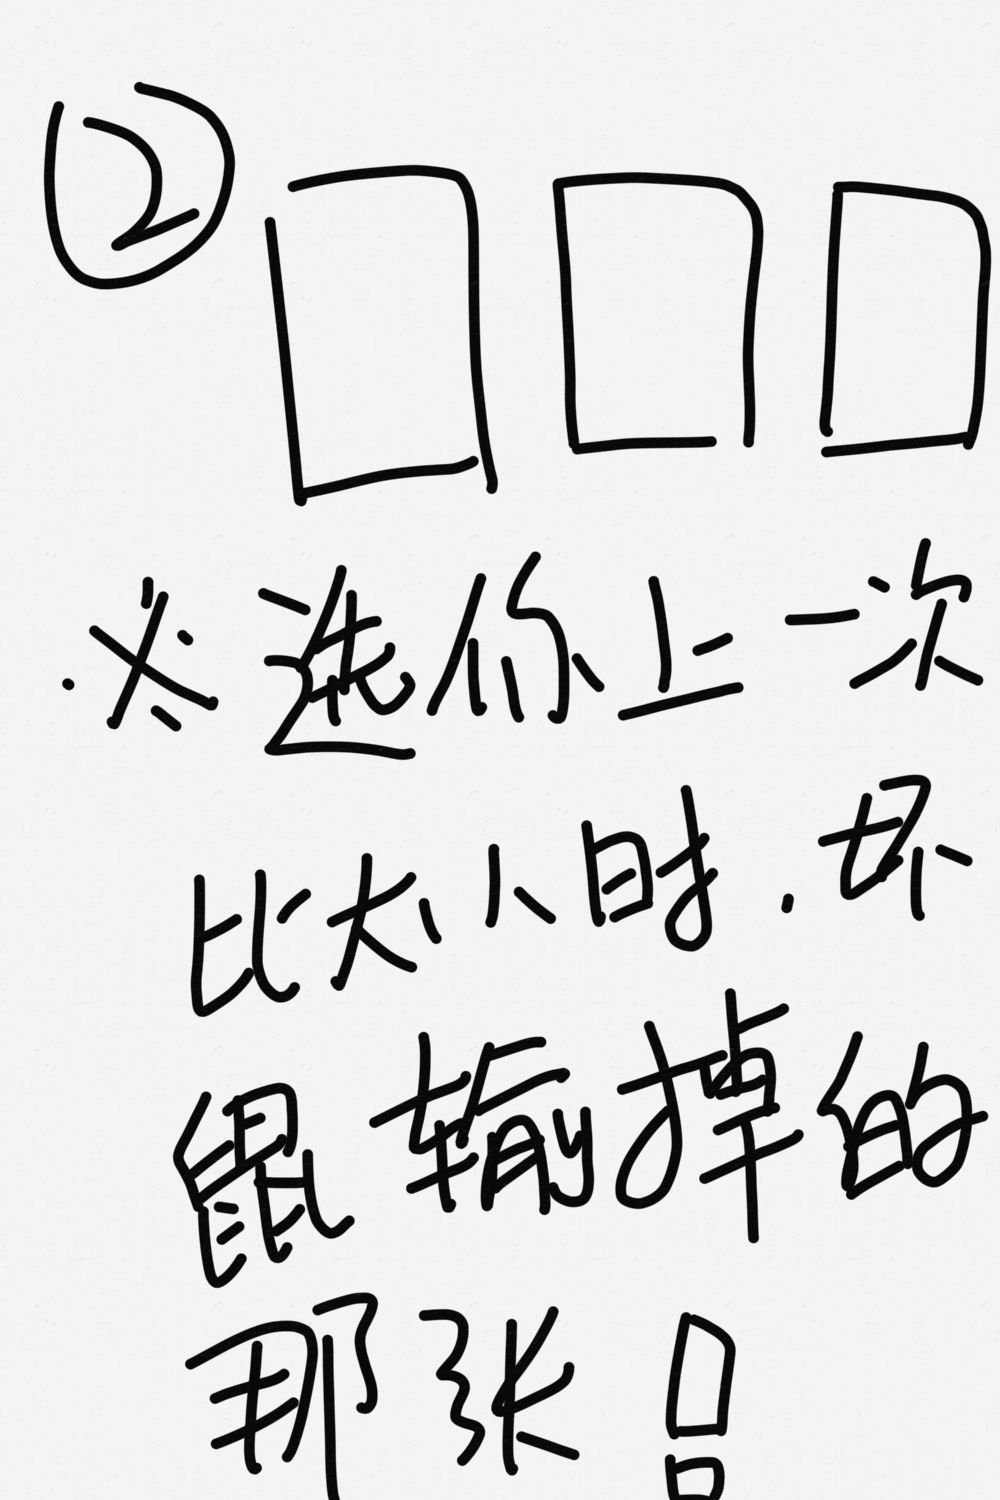 ②
·必选你上一次
比大小时.坏
鼠输掉的
那张!